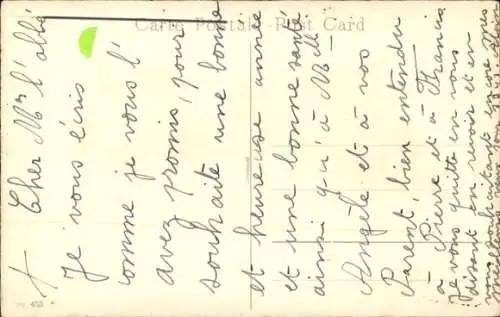 Carte Postale - Post Card
Cher Mr l'abbé
Je vous écris
comme je vous l'
avez promis, pour
souhaite une bonne
et heureuse année
et une bonne santé
ainsi qu'à Mlle
Angèle et à vos
Parent, bien entendu
à Pierre et à Francis
Je vous quitte en vous
disant en revoir et en
vous souhaitant encore mes
453